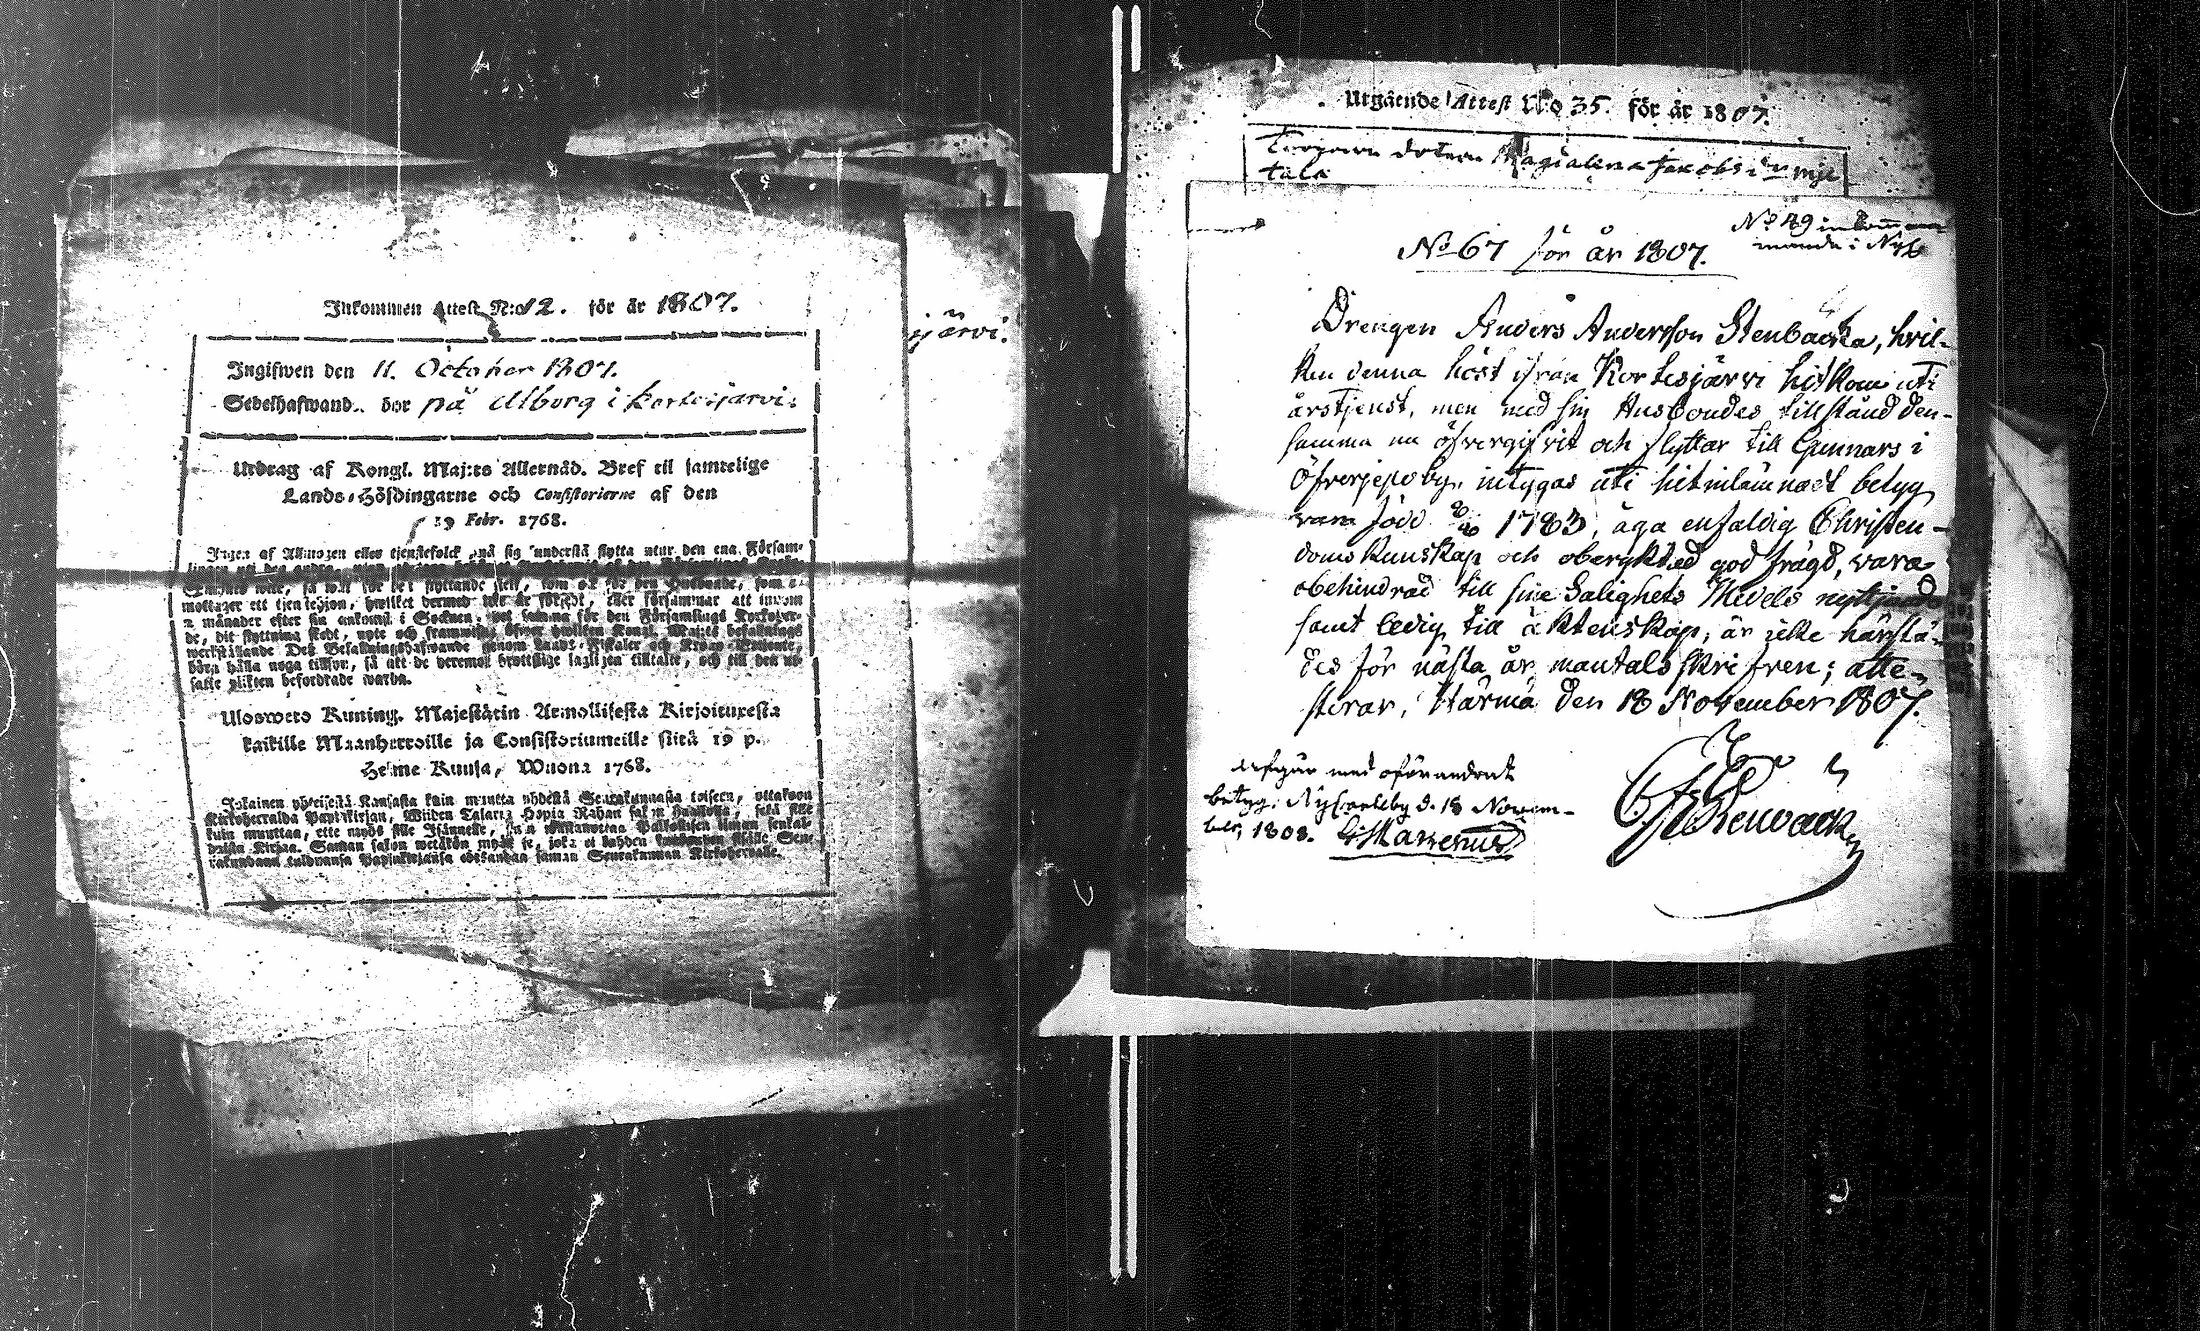 Inkommen Attest N:o 12. för år 1807.
Ingifwen den 11. October 1807.
Sedelhafwand.. bor på Alborg i Kortesjärvi.
Utdrag af Kongl. Maj:ts Allernåd. Bref til samtelige
Lands-Höfdingarne och Consistorierne af den
19 Febr. 1768.
Ingen af Allmogen eller tjenstefolck må sig understå flytta utur den ena Försam-
mottager ett tjenstehjon, hwilket dermed icke är försedt, eller försummar att innom
2 månader efter sin ankomst i Socknen, wet samma för den Församlings Kyrkoher-
de, dit flyttning skedt, upte och framwisa; öfwer hwilken Kongl. Maj:ts befallnings
werkställande Des Befallningshafwande genom Lands-Fiskaler och Krono-Betiente,
böra hålla noga tillsyn, så att de deremot brottslige lagligen tilltalte, och till den ut-
satte plikten befordrade warda.
Ulosweto Kuning. Majestätin Armollisesta Kirjoituxesta
kaikille Maanherroille ja Consistoriumeille siitä 19 p.
Helme Kuusa, Wuona 1768.
Jokainen yhteisestä Kansasta kuin muutta yhdestä Seurakunnasta toiseen, ottakoon
Kirkoherralda Papinkirjan, Wiiden Talarin Hopia Rahan sakon haastolla, sekä sille
kuin muuttaa, ette myös sille Isännelle, joka wastanottaa Palkollisen ilman senkal-
daista Kirjaa. Saman sakon wetäkön myös se, joka ei kahden
rakundans tuldwansa Papinkirjansa edesandaa saman Seurakunnan Kirkoherralle.
järvi.
Utgående Attest N:o 35. för år 1807.
Magdalena Jakobs i
tala
No 67 för år 1807.
No 49 inkom
mande i Nyk
Drengen Anders Andersson Stenbacka, hvil-
ken denna höst ifrån Kortesjärvi hitkom uti
årstjenst, men med sin Husbondes tillstånd den-
samma nu öfvergifvit och flyttar till Gunnars i
Öfverjeppo by, intygas uti hit inlämnadt betyg
vara född 1783, äga enfaldig Christen-
doms kunskap och oberyktad god frägd, vara
obehindrad till sine Salighets Medels nyttjande
samt ledig till äktenskap; är icke härstä-
des för nästa år mantalsskrifven; atte-
sterar, Härmä den 18 November 1807.
Afgår med oförändradt
betyg; Nykarleby d. 18 Novem-
ber 1808. G Marenius